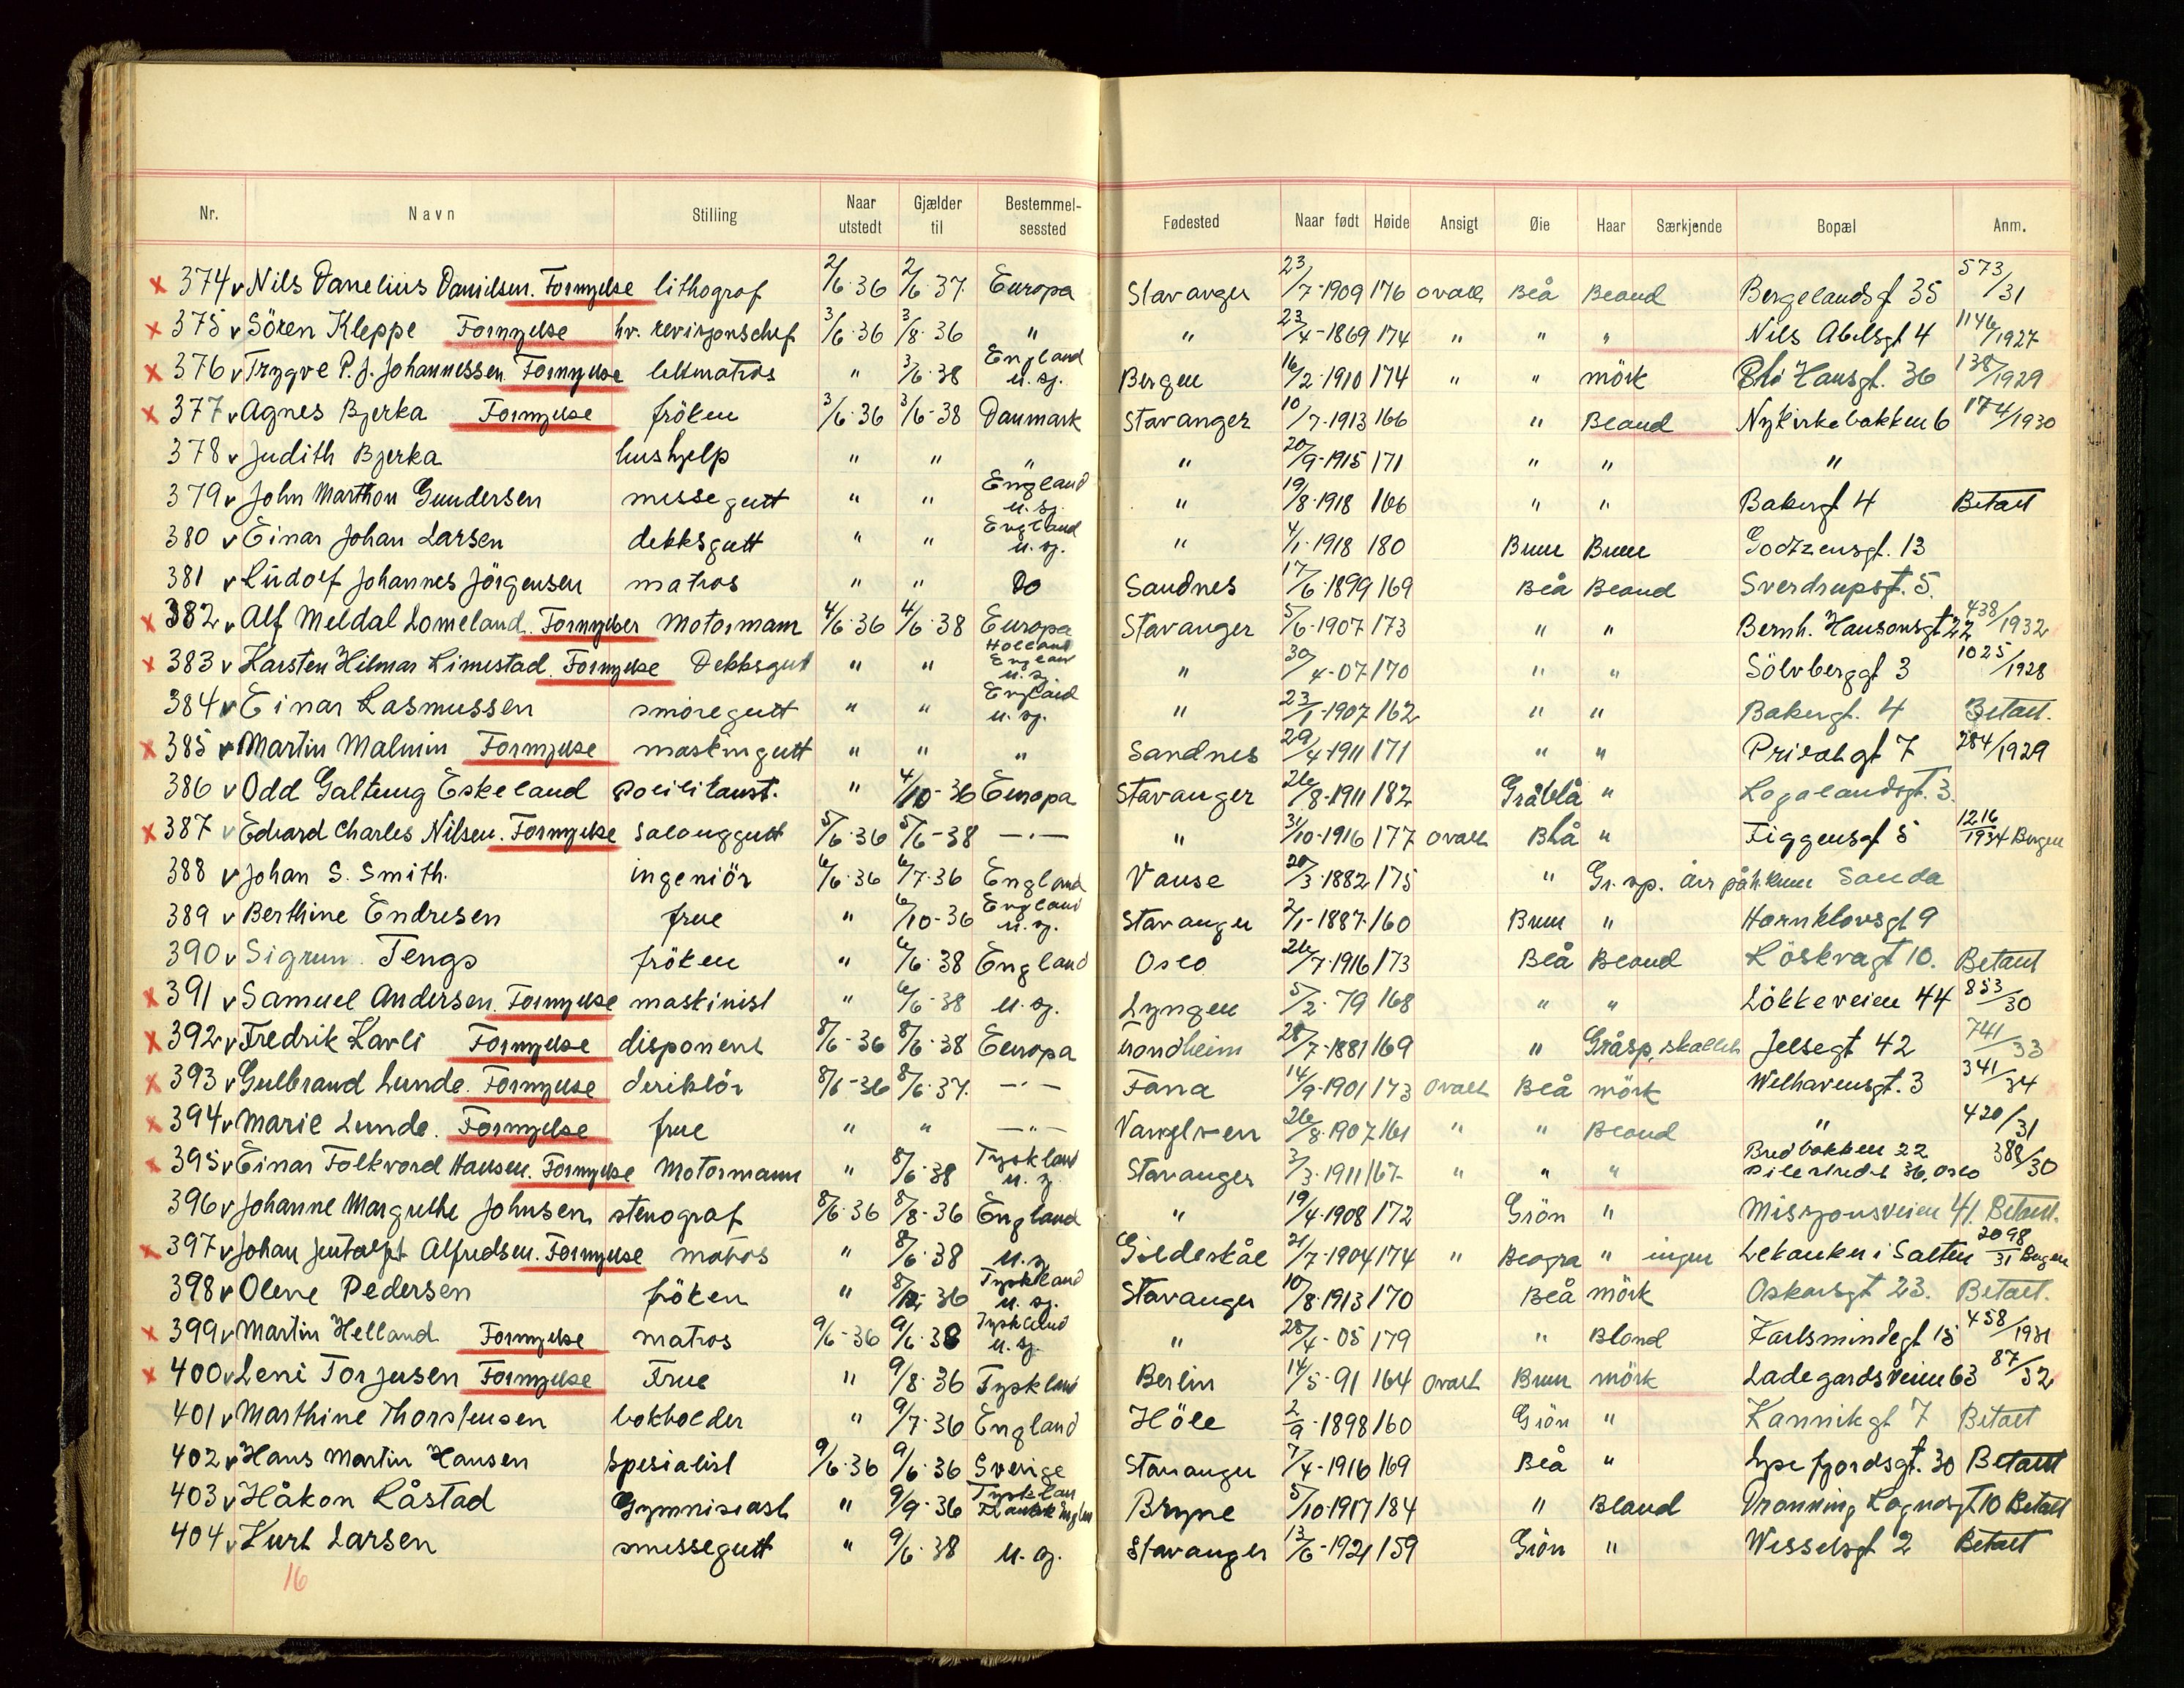 Nr. Navn Stilling Naar utstedt Gjælder til Bestemmelsessted Fødested Naar født Høide Ansigt Øie Haar Særkjende Bopæl Anm.
x 374 v Nils Danelius Danielsen. Fornyelse lithograf 2/6-36 2/6-37 Europa Stavanger 23/7-1909 176 ovalt Blå Blond Bergelandsgt 35 573/31
x 375 v Sören Kleppe Fornyelse hv. revisjonschef 3/6-36 3/8-36 " " 23/4-1869 174 " " " Nils Abelsgt 4 1146/1927
x 376 v Trygve P. J. Johannessen Fornyelse lettmatros " 3/6-38 England u. sj. Bergen 16/2-1910 174 " " mörk Hansgt. 36 138/1929
x 377 v Agnes Bjerka Fornyelse fröken 3/6-36 3/6-38 Danmark Stavanger 10/7-1913 166 " Blond Nykirkebakken 6 174/1930
378 v Judith Bjerka hushjelp " " " " 20/9-1915 171 " " "
379 v John Marthon Gundersen messegutt " " England u. sj. " 19/8-1918 166 " " Bakergt 4 Betalt
380 v Einar Johan Larsen dekksgutt " " England u. sj. " 4/1-1918 180 Brun Brun Godtzensgt. 13
381 v Ludolf Johannes Jörgensen matros " " Do Sandnes 17/6-1899 169 Blå Blond Sverdrupsgt. 5.
x 382 v Alf Meldal Lomeland. Fornyelser Motormann 4/6-36 4/6-38 Europa Stavanger 5/6-1907 173 " " Bernh. Hansonsgt 22 438/1932
x 383 v Karsten Hilmar Limestad. Fornyelse Dekksgut " " Holland England u. sj. " 30/4-07 170 " " Sölvberggt 3 1025/1928
384 v Einar Rasmussen smöregutt " " England u. sj. " 23/1-1907 162 " " Bakergt. 4 Betalt.
x 385 v Martin Malmin Fornyelse maskingutt " " " Sandnes 29/4-1911 171 " " Privatgt 7 284/1929
386 v Odd Galtung Eskeland politikonst. " 4/10-36 Europa Stavanger 26/8-1911 182 Gråblå " Rogalandsgt. 3.
x 387 v Edvard Charles Nilsen. Fornyelse Salonggutt 5/6-36 5/6-38 — " — " 31/10-1916 177 ovalt Blå " Figgensgt 5 1216/1934 Bergen
388 v Johan S. Smith. ingeniör 6/6-36 6/7-36 England Vanse 20/3-1882 175 " Gr. sp. Arr på h. kinn Sauda
389 v Berthine Endresen frue " 6/10-36 England u. sj. Stavanger 2/1-1887 160 Brun " Hornklovsgt 9
390 v Sigrun Tengs fröken " 6/6-38 England Oslo 26/7-1916 173 Blå Blond Löskvagt 10. Betalt
x 391 v Samuel Andersen. Fornyelse maskinist " 6/6-38 u. sj. Lyngen 5/2-79 168 " " Lökkeveien 44 853/30
x 392 v Fredrik Kavli Fornyelse disponent 8/6-36 8/6-38 Europa Trondheim 28/7-1881 169 " Gråsp, skallet Jelsegt 42 741/33
x 393 v Gulbrand Lunde. Fornyelse deriktör 8/6-36 8/6-37. — " — Fana 14/9-1901 173 ovalt Blå mörk Welhavensgt. 3 341/34
x 394 v Marie Lunde. Fornyelse frue " " — " — 26/8-1907 161 " " Blond " 420/31
x 395 v Einar Folkvord Hansen. Fornyelse Motormann " 8/6-38 Tyskland u. sj. Stavanger 3/3-1911 167 " " " Bredbakken 22 Pilestredet 36, Oslo 388/30
396 v Johanne Margrethe Johnsen stenograf 8/6-36 8/8-36 England " 19/4-1908 172 Grön " Misjonsveien 41. Betalt.
x 397 v Johan Jentoft Alfredsen. Fornyelse matros " 8/6-38 u. sj. Gildeskål 21/7-1904 174 " Blågrå " ingen Lekanker i Salten 2098/31 Bergen
398 v Olene Pedersen fröken " 8/12-36 Tyskland u. sj. Stavanger 10/8-1913 170 Blå mörk Oskarsgt 23. Betalt.
x 399 v Martin Helland Fornyelse matros 9/6-36 9/6-38 Tyskland u. sj. " 28/4-05 179 " Blond Karlsmindegt 15 458/1931
x 400 v Leni Torjusen Fornyelse Frue " 9/8-36 Tyskland Berlin 14/5-91 164 ovalt Brun mörk Ladegårdsveien 63 87/32
401 v Marthine Thorstensen bokholder " 9/7-36 England Höle 2/9-1898 160 Grön " Kannikgt 7 Betalt
402 v Hans Martin Hansen Spesialist 9/6-36 9/6-36 Sverige Stavanger 7/4-1916 169 Blå " Lysefjordsgt. 30 Betalt
403 v Håkon Låstad Gymnisiast " 9/9-36 Tysklan Bryne 5/10-1917 184 " Blond Dronning Ragndsgt 10 Betalt
404 v Kurt Larsen messegutt " 9/6-38 u. sj. Stavanger 13/6-1921 159 Grön " Wesselsgt 2 Betalt
16